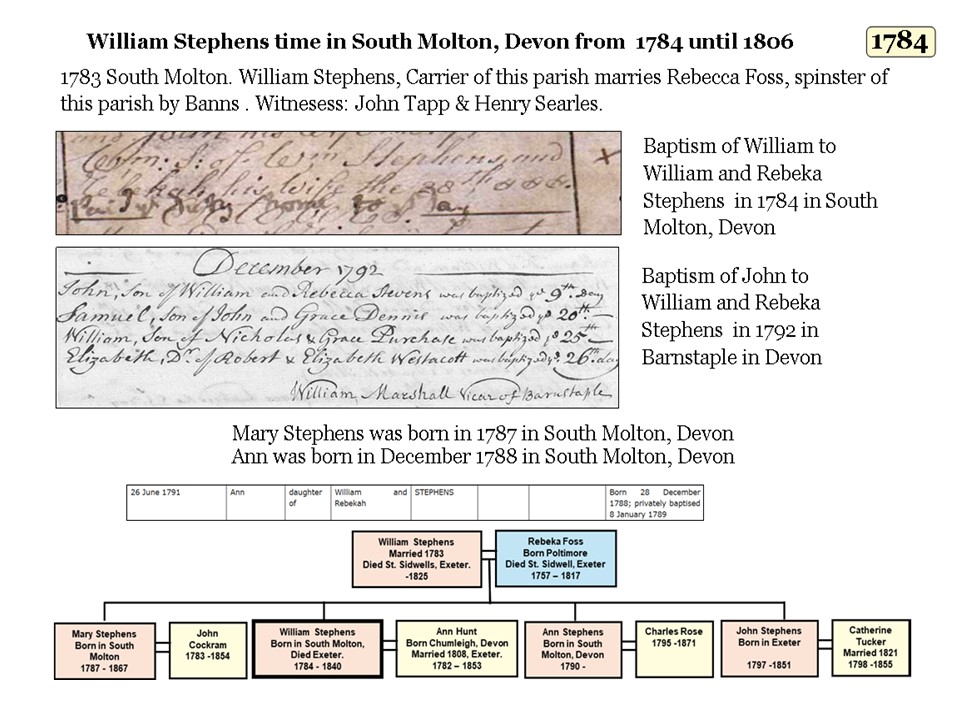 William Stephens time in South Molton, Devon from 1784 until 1806
1784
1783 South Molton. William Stephens, Carrier of this parish marries Rebecca Foss, spinster of
this parish by Banns . Witnesess: John Tapp & Henry Searles.
Stephens and
his Wife the
Baptism of William to
William and Rebeka
Stephens in 1784 in South
Molton, Devon
December 1792
John, Son of William and Rebecca Stevens was baptized ye 9th. day
Samuel, Son of John and Grace Dennis was baptized ye 20th.
William, Son of Nicholas & Grace Purchase was baptized ye 25th
Elizabeth, Dr. of Robert & Elizabeth Westacott was baptized ye. 26th day
William Marshall Vicar of Barnstaple
Baptism of John to
William and Rebeka
Stephens in 1792 in
Barnstaple in Devon
Mary Stephens was born in 1787 in South Molton, Devon
Ann was born in December 1788 in South Molton, Devon
26 June 1791 Ann daughter William and STEPHENS Born 28 December
of Rebekah 1788; privately baptised
8 January 1789
William Stephens
Married 1783
Died St. Sidwells, Exeter.
-1825
Rebeka Foss
Born Poltimore
Died St. Sidwell, Exeter
1757 – 1817
Mary Stephens
Born in South
Molton
1787 - 1867
John
Cockram
1783 -1854
William Stephens
Born in South Molton,
Died Exeter.
1784 - 1840
Ann Hunt
Born Chumleigh, Devon
Married 1808, Exeter.
1782 – 1853
Ann Stephens
Born in South
Molton, Devon
1790 -
Charles Rose
1795 -1871
John Stephens
Born in Exeter
1797 -1851
Catherine
Tucker
Married 1821
1798 -1855